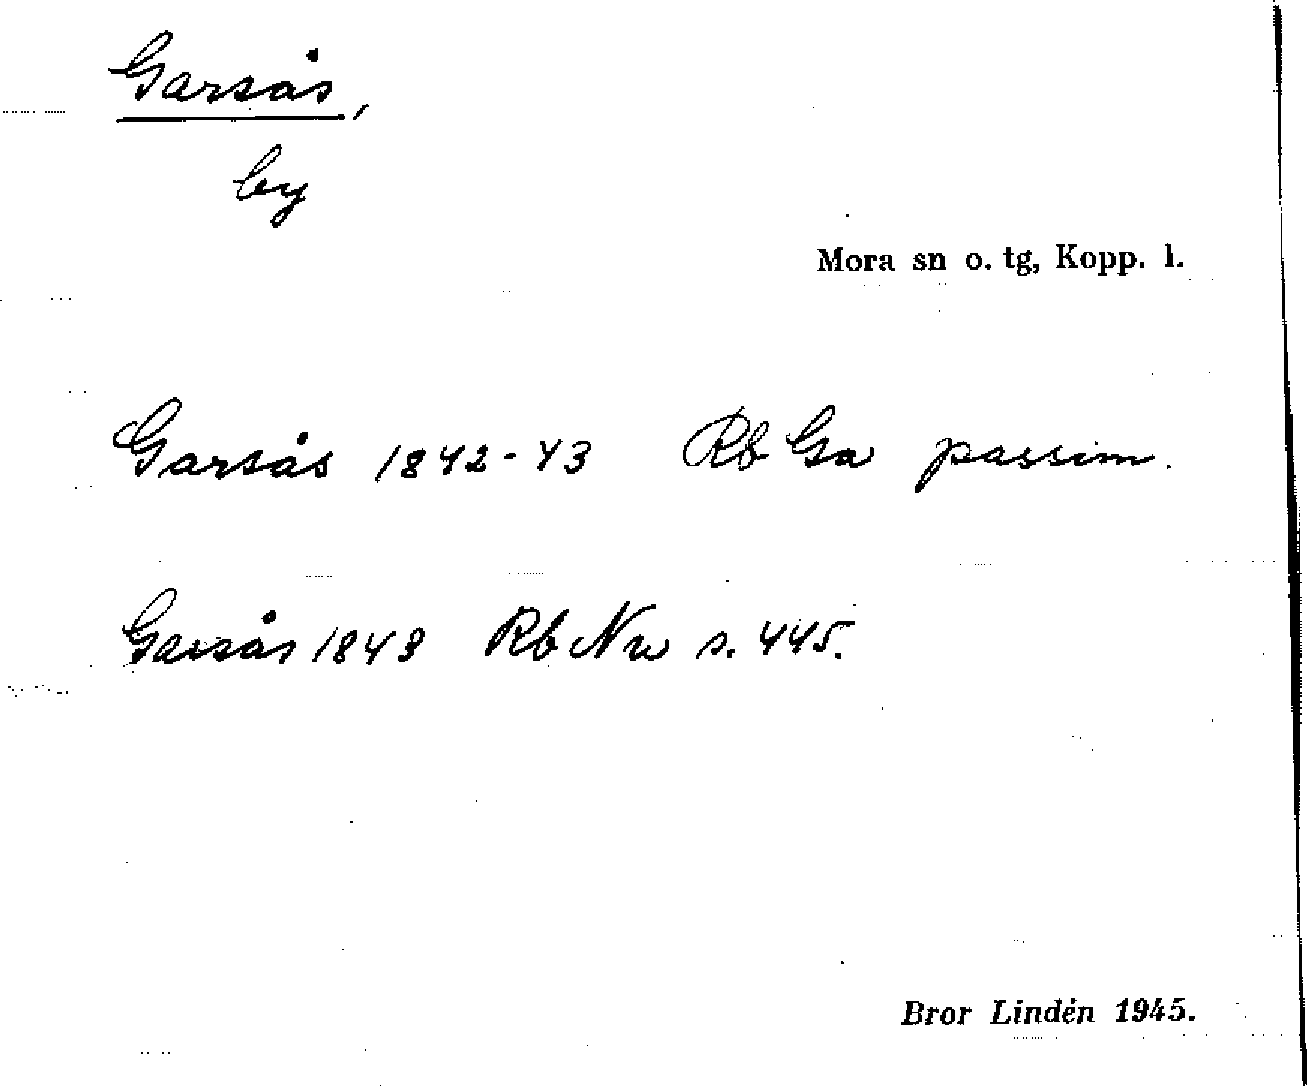 Garsås,
by
Mora sn o. tg, Kopp. l.
Garsås 1842-43 Rb Ga passim.
Garsås 1843 Rb Nw s. 445.
Bror Lindén 1945.